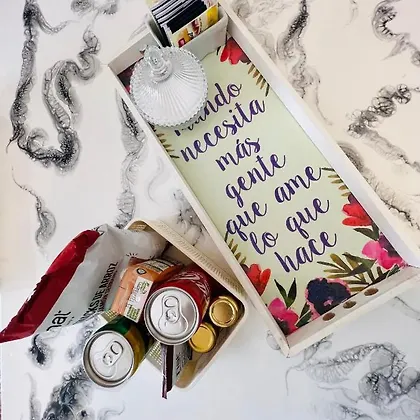 mundo
necesita
más
gente
que ame
lo que
hace